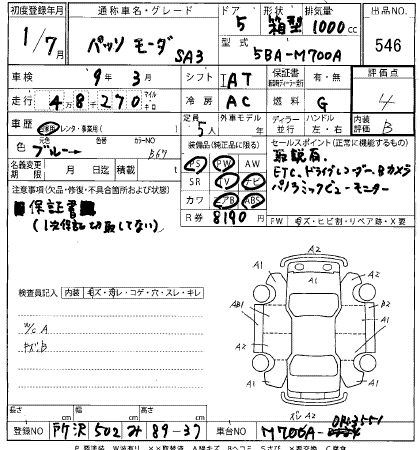 初度登録年月 通称車名・グレード ドア 形状 排気量 出品NO.
1/7月 パッソ モーダ SA3 5 箱型 1000cc 546
型式 5BA-M700A
車検 9年 3月 シフト IAT 保証書 有・無 評価点
走行 48270 マイル キロ 冷房 AC 燃料 G 4
車歴 自家用 レンタ・事業用( ) 定員 5人 外車モデル 年 ディーラー 並行 ハンドル 左・右 内装評価 B
色 ブルー 色替 カラーNO B69
装備品(純正品に限る) セールスポイント(正常に機能するもの)
PS PW AW 取説有
SR TV ナビ ETC、ドライブレコーダー、Bカメラ
カワ エアB ABS パノラミックビューモニター
名義変更期限 月 日 積載量 t
R券 8190円 FW キズ・ヒビ割・リペア跡・X要
注意事項(欠品・修復・不具合箇所および状態)
保証書
(1次保証切取してない)
検査員記入 内装 キズ・汚レ・コゲ・穴・スレ・キレ
W/C A
キズ、B
A2
A1 A1
AB1 B2
A1
A2 A2
A1 A1
A2
長さ cm 幅 cm 高さ cm
登録NO 所沢 502 み 89-37 車台NO M700A-